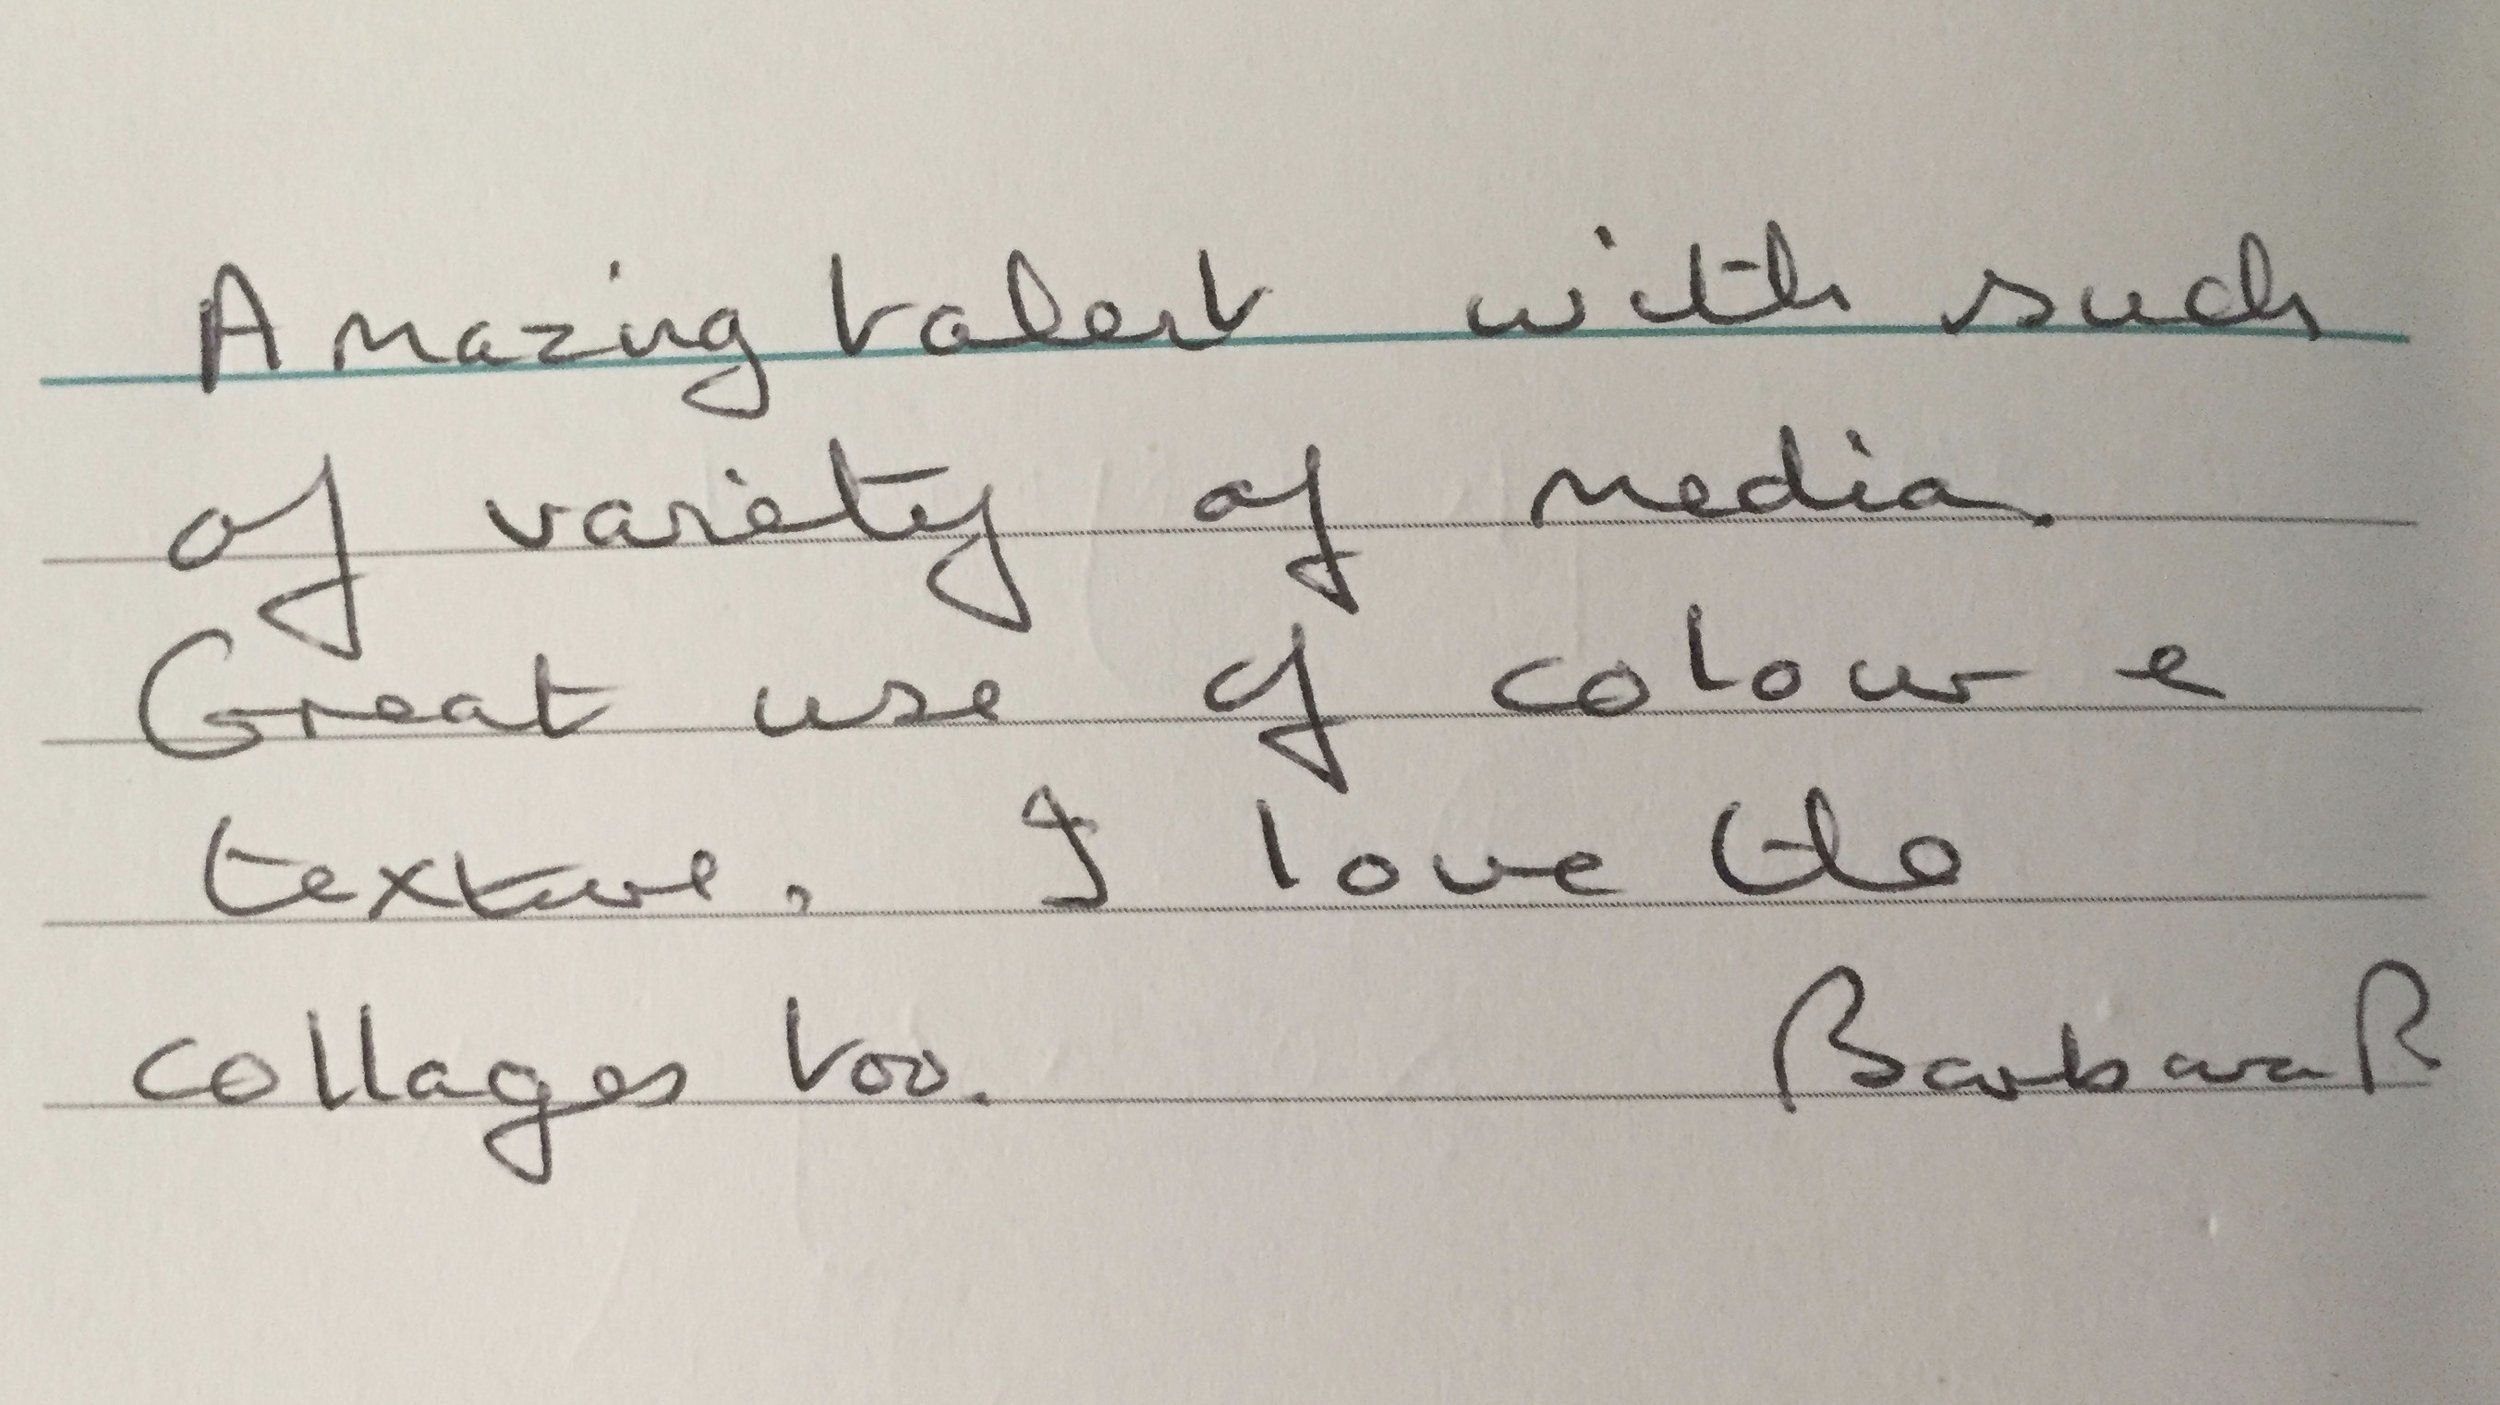 Amazing talent with such
of variety of media.
Great use of colour e
texture. I love the
collages too. Barbara R